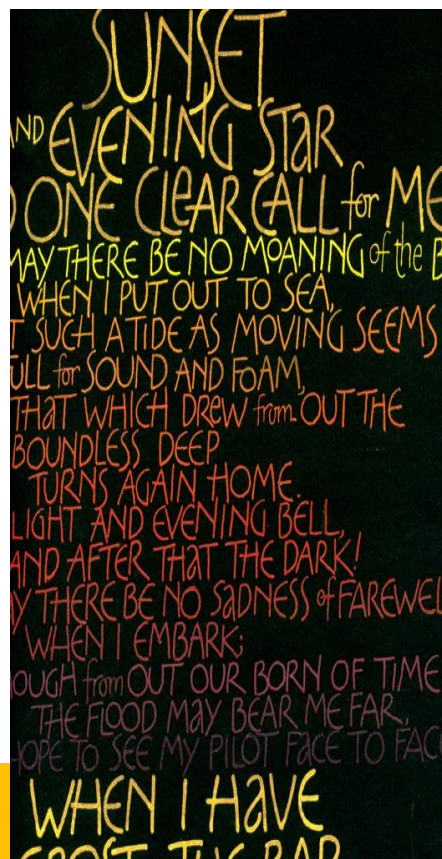 SUNSET
AND EVENING STAR
ONE CLEAR CALL for ME
MAY THERE BE NO MOANING of the B
WHEN I PUT OUT TO SEA,
T SUCH A TIDE AS MOVING SEEMS
ULL for SOUND AND FOAM,
THAT WHICH DREW from OUT THE
BOUNDLESS DEEP
TURNS AGAIN HOME.
LIGHT AND EVENING BELL,
AND AFTER THAT THE DARK!
AY THERE BE NO SADNESS of FAREWEL
WHEN I EMBARK;
OUGH from OUT OUR BORN OF TIME
THE FLOOD MAY BEAR ME FAR,
HOPE TO SEE MY PILOT FACE TO FAC
WHEN I HAVE
CROST THE BAR